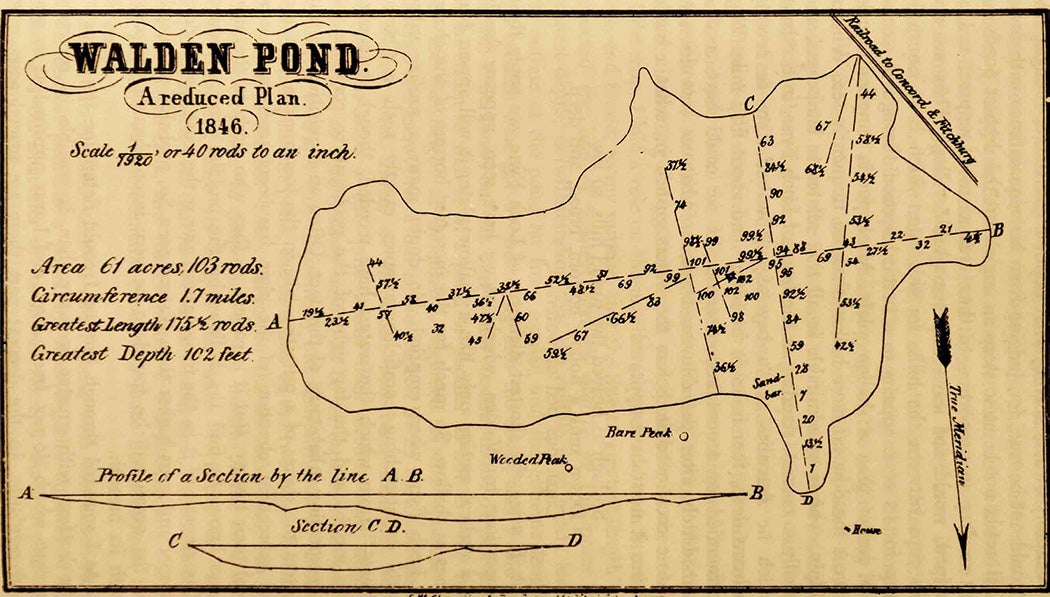 WALDEN POND.
A reduced Plan.
1846.
Scale 1/1920, or 40 rods to an inch.
Area 61 acres, 103 rods.
Circumference 1.7 miles.
Greatest Length 175½ rods.
Greatest Depth 102 feet.
Railroad to Concord & Fitchburg
C
44
67
58½
68½
54½
53½
63
84½
90
92
99½
37½
74
98½ 99
A 19½ 23½ 41 57 58 40 37½ 36½ 35½ 66 52½ 48½ 51 69 92 99 101 101 99½ 94 88 69 43 27½ 22 32 21 4½ B
44
57½
40½
32
47½
45
60
59
59½ 67 66½ 83
100
102
102
100
98
74½
36½
95
96
92½
84
59
28
7
20
13½
1
D
54
53½
42½
Sand-
bar.
Bare Peak
Wooded Peak
House
True Meridian
Profile of a Section by the line A.B.
A B
Section C D.
C D